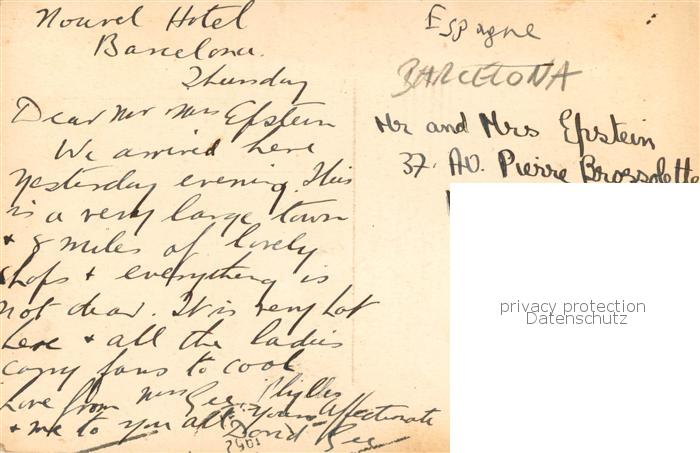 Nouvel Hotel
Barcelona.
Thursday
Dear Mr Mrs Epstein
We arrived here
yesterday evening. This
is a very large town
+ 8 miles of lovely
shops + everything is
not dear. It is very hot
here + all the ladies
carry fans to cool
Love from Mrs Gee. Phyllis
+ me to you all. Yours Affectionate
David Gee
Espagne
BARCELONA
Mr and Mrs Epstein
37. AV. Pierre Brossolette
privacy protection
Datenschutz